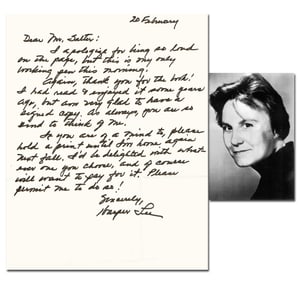 20 February
Dear Mr.
I apologize for being so loud
on the page, but this is my only
working pen this morning.
Again, thank you for the book!
I had read & enjoyed it some years
ago, but am very glad to have a
signed copy. As always, you are so
kind to think of me.
If you are of a mind to, please
hold a print until I'm home again
next fall. I'd be delighted with what-
ever one you choose, and of course
will want to pay for it. Please
permit me to do so!
Sincerely,
Harper Lee